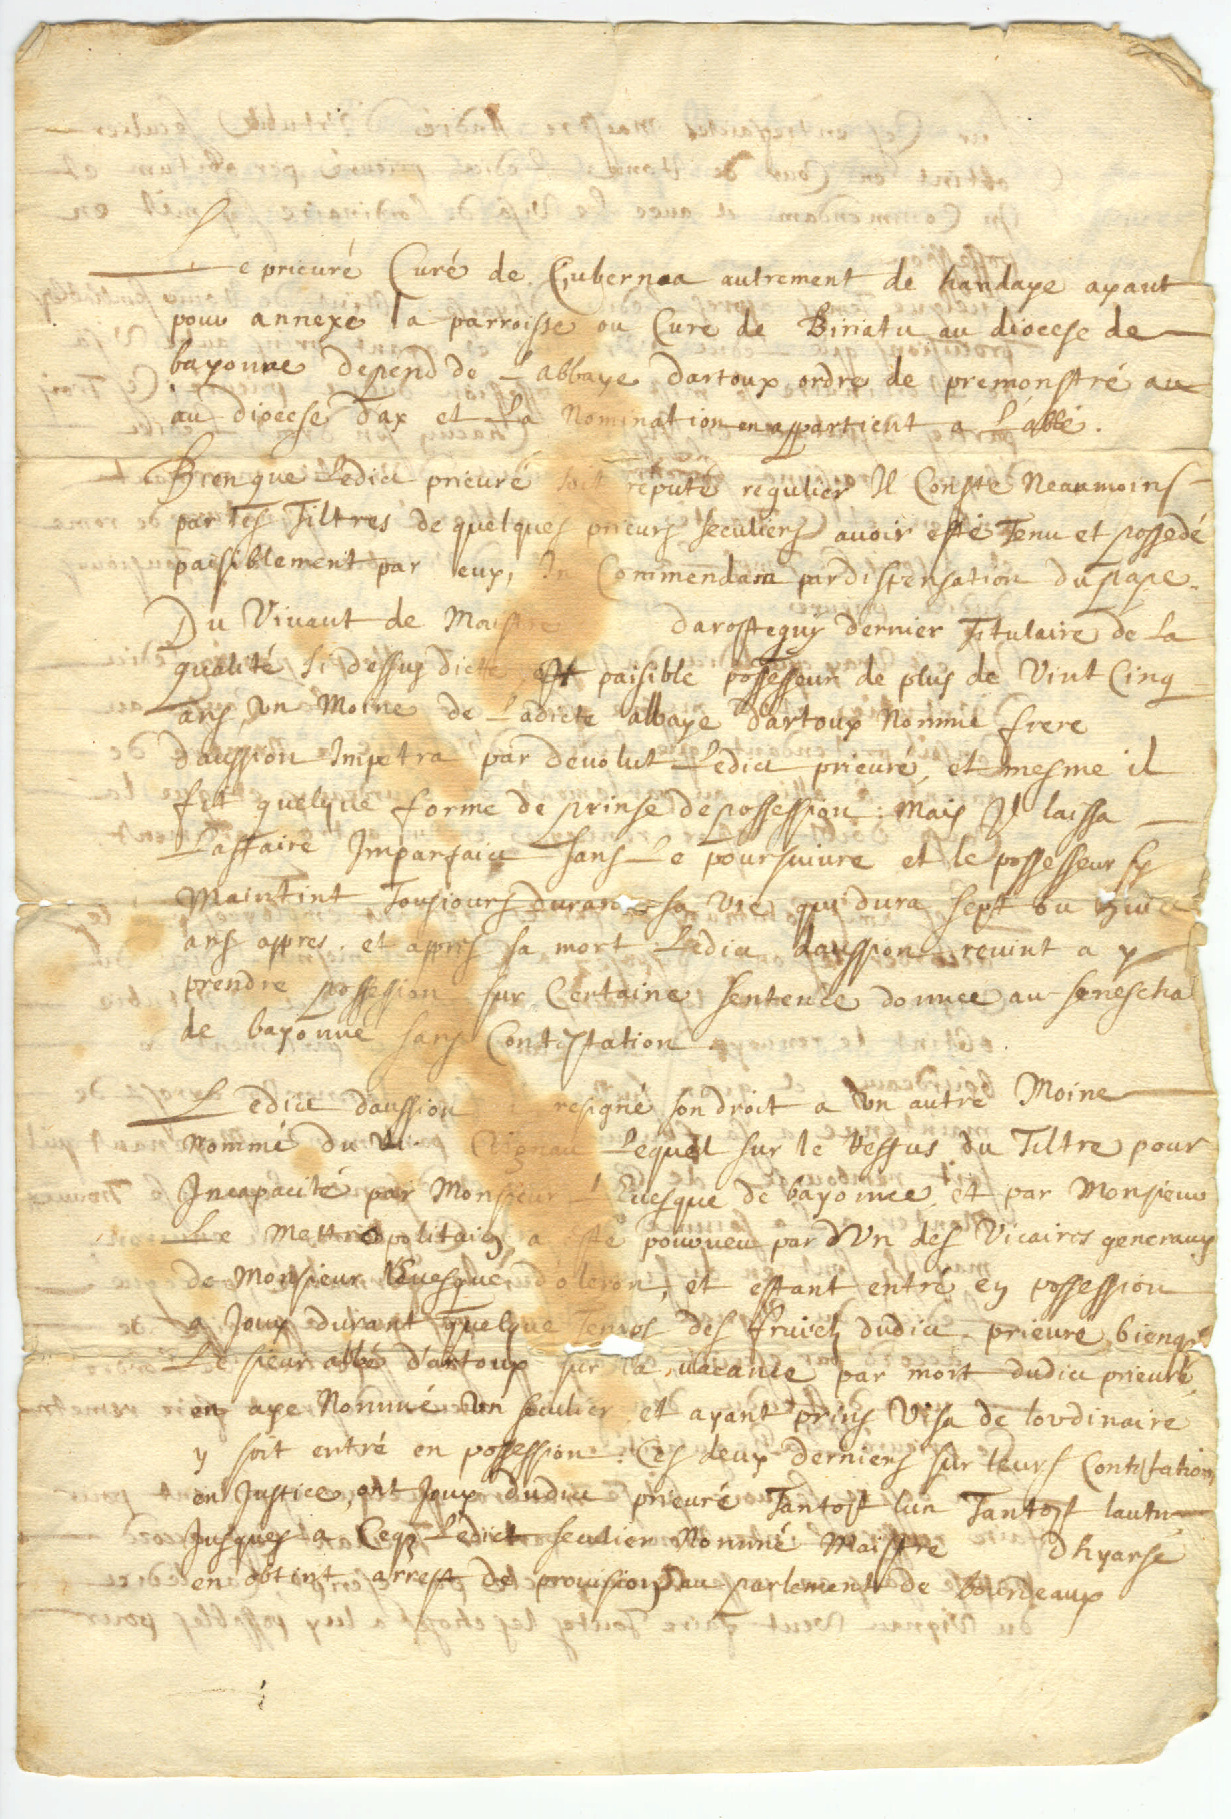 Le prieuré Curé de Gubernoa autrement de handaye ayant
pour annexe la parroisse ou Cure de Biriatu au diocese de
bayonne depend de L'abbaye dartoux ordre de premonstré au
au diocese dax et La Nomination en appartient a L'abbé.
Bien que Ledict prieuré soit reputé regulier Il Conste Neaumoins
par les Tiltres de quelques prieurs seculiers avoir esté Tenu et possedé
paisiblement par eux, In Commendam par dispensation du pape.
Du Vivant de Maistre darosteguy dernier Titulaire de La
qualité si dessus dicte Et paisible possesseur de plus de Vint Cinq
ans, Un Moine de Ladicte abbaye dartoux Nommé frere
daussion Impetra par devolut Ledict prieuré, et mesme il
fit quelque forme de prinse de possession: Mais Il laissa
L'affaire Imparfaict sans Le poursuivre et le possesseur sy
Maintint Tousiours durant sa vie qui dura sept ou huict
ans appres. et appres sa mort Ledict daussion revint a y
prendre possession sur Certaine sentence donnee au senescha
de bayonne sans Contestation.
Ledict daussion resigné son droit a Un autre Moine
Nommé du Vignau Lequel sur le Reffus du Tiltre pour
Incapacité par Monsieur L'Evesque de bayonne et par Monsieur
Le Mettropolitain a esté pourveu par d'Un des Vicaires generaux
de Monsieur l'Evesque d'oleron, et estant entré en possession
a Jouy durant quelque Temps des fruicts dudict prieuré bienq
Le sieur abbé d'artoux sur la vacance par mort dudict prieuré
en aye Nommé Un seculier et ayant prins Visa de lordinaire
y soit entré en possession: Ces deux derniers sur leurs Contestation
en Justice, ont Jouy dudict prieuré Tantost lun Tantost lautre
Jusques a Ceq Ledict seculier Nommé Maistre dhyarse
en obtint arrest de provision au parlement de bourdeaux